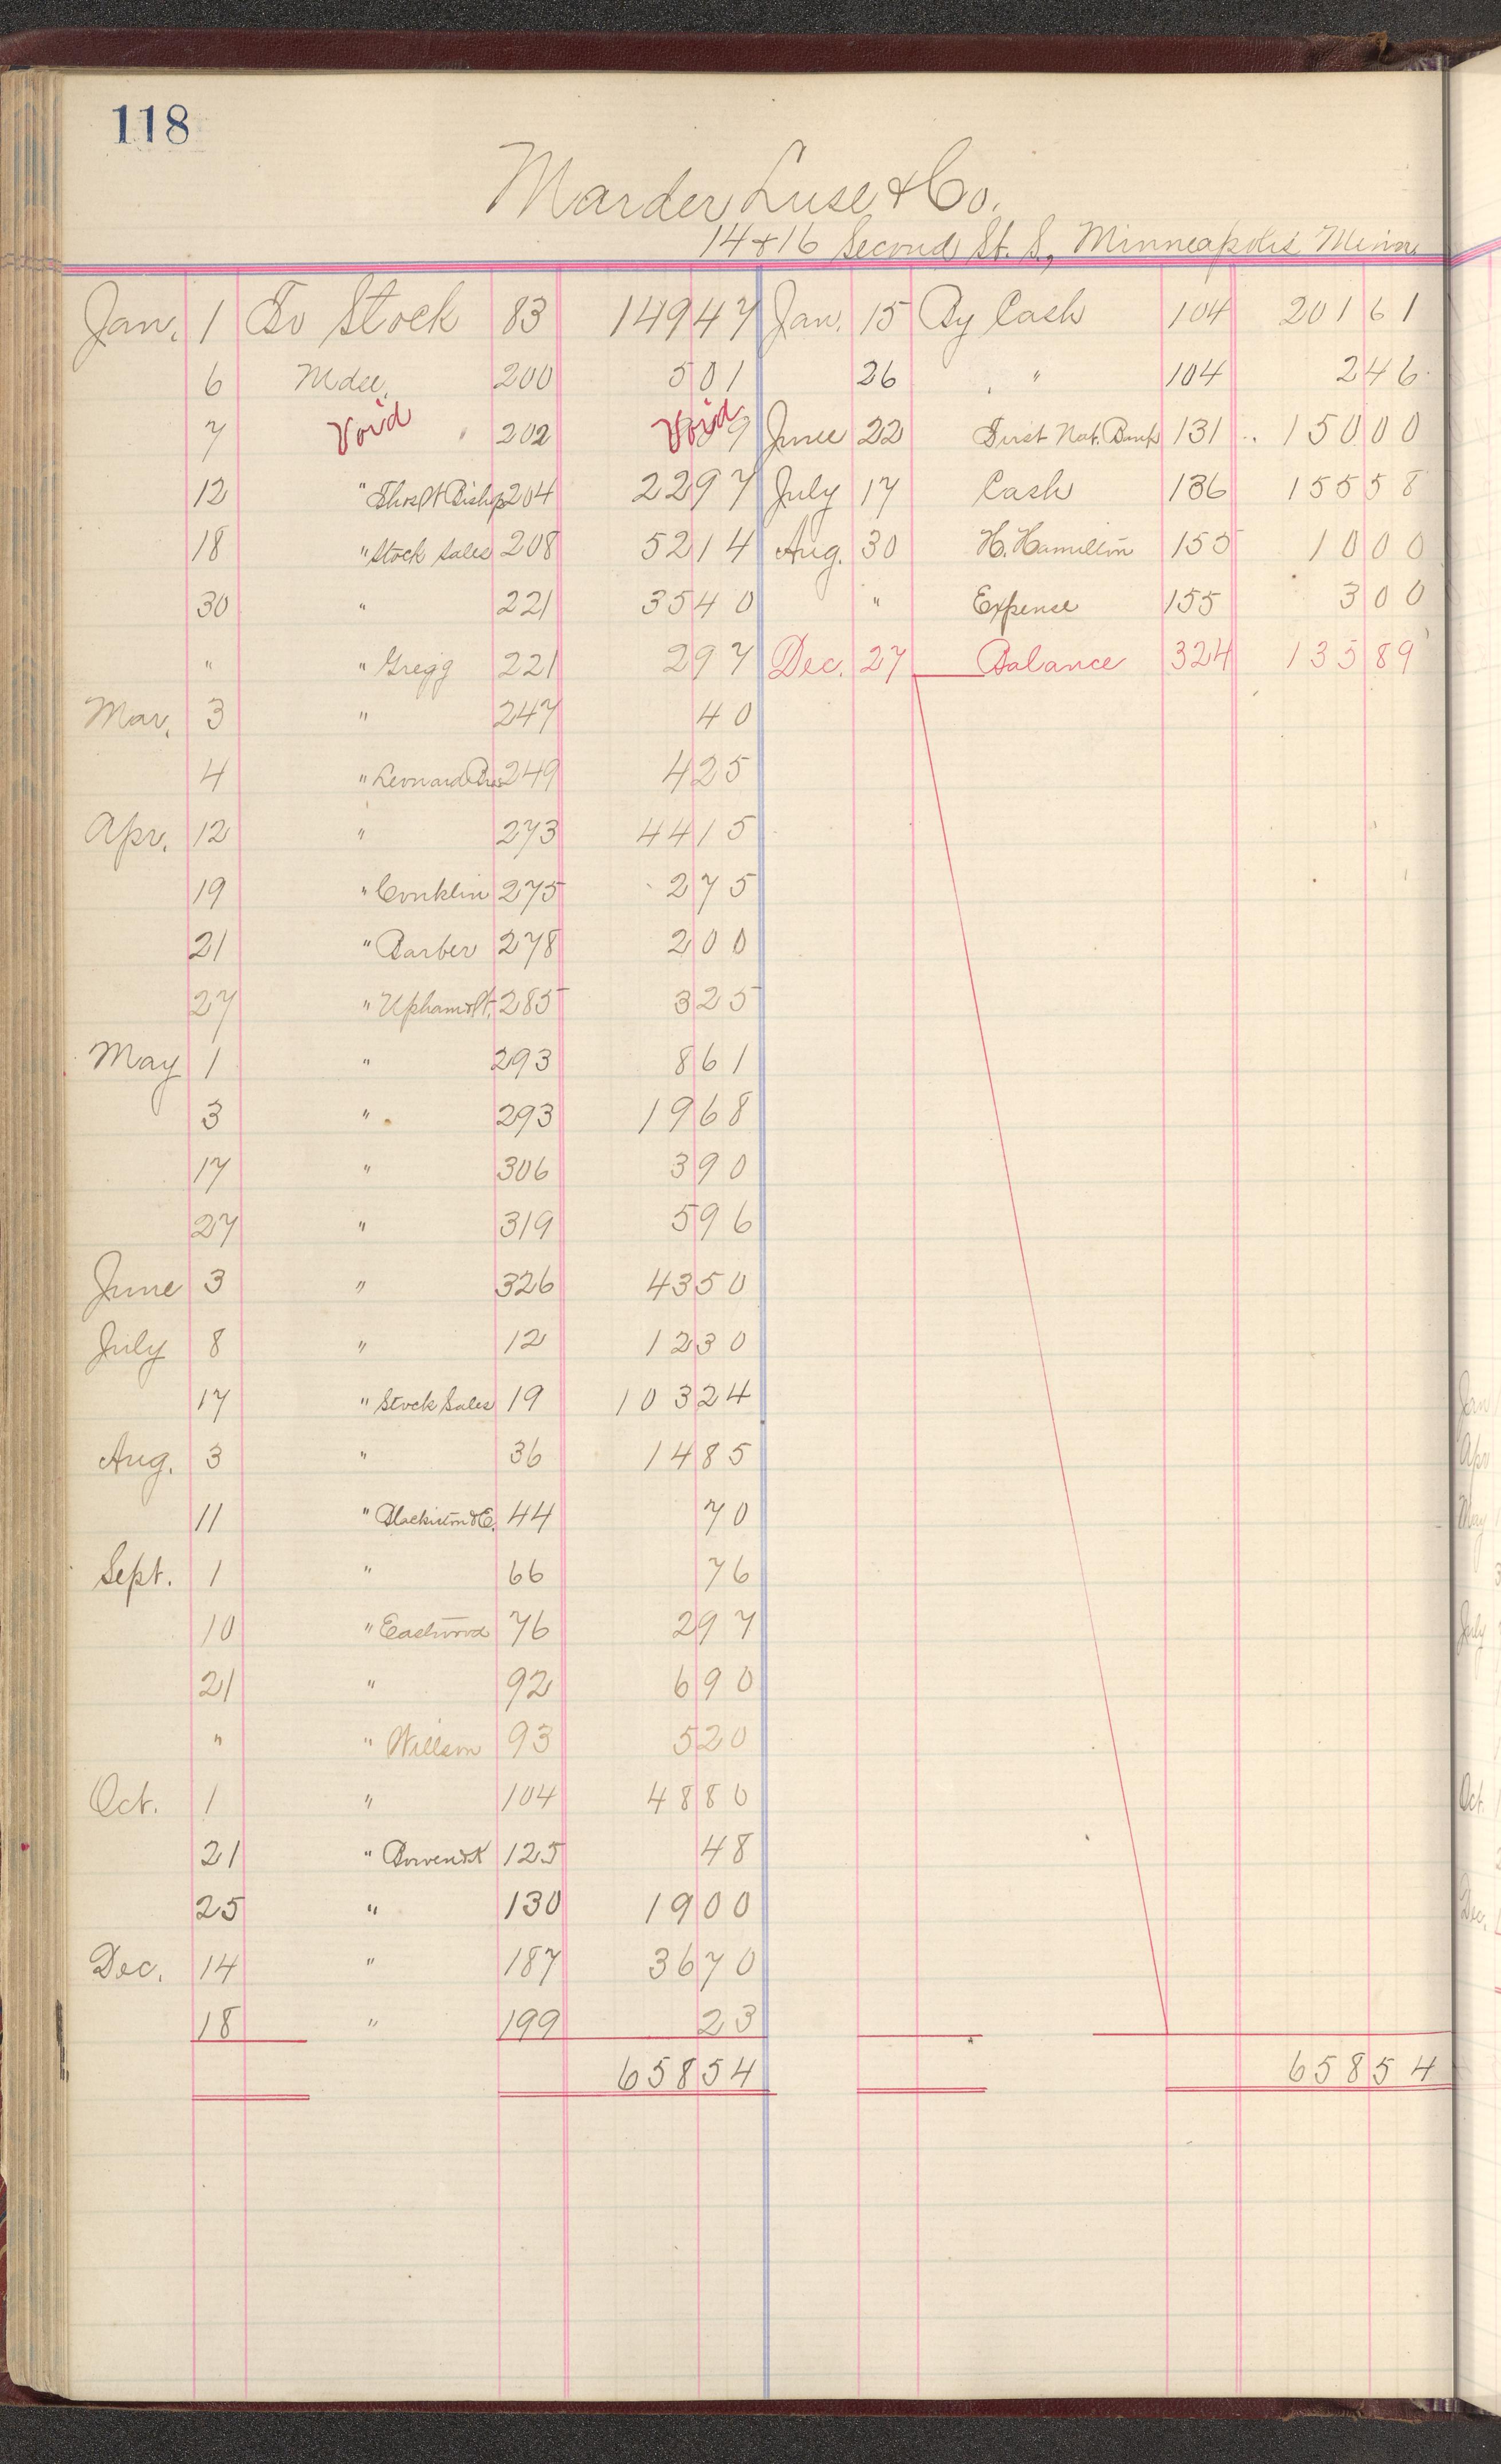 118
Marder Luse & Co.
14 & 16 Second St. S, Minneapolis Minn.
Jan. 1 To Stock 83 149 47 Jan. 15 By Cash 104 201 61
6 Mdse. 200 5 01 26 " 104 2 46
7 Void " 202 Void 9 June 22 First Nat. Bank 131 150 00
12 " 204 22 97 July 17 Cash 136 155 58
18 " Stock Sales 208 52 14 Aug. 30 H. Hamilton 155 10 00
30 " 221 35 40 " Expense 155 3 00
" " Gregg 221 2 97 Dec. 27 Balance 324 135 89
Mar. 3 " 247 40
4 " Leonard 249 4 25
Apr. 12 " 273 44 15
19 " Conklin 275 2 75
21 " Barber 278 2 00
27 " Upham 285 3 25
May 1 " 293 8 61
3 " 293 19 68
17 " 306 3 90
27 " 319 5 96
June 3 " 326 43 50
July 8 " 12 12 30
17 " Stock Sales 19 103 24
Aug. 3 " 36 14 85
11 " 44 70
Sept. 1 " 66 76
10 " Eastwood 76 2 97
21 " 92 6 90
" " Willson 93 5 20
Oct. 1 " 104 48 80
21 " 125 48
25 " 130 19 00
Dec. 14 " 187 36 70
18 " 199 23
658 54 658 54